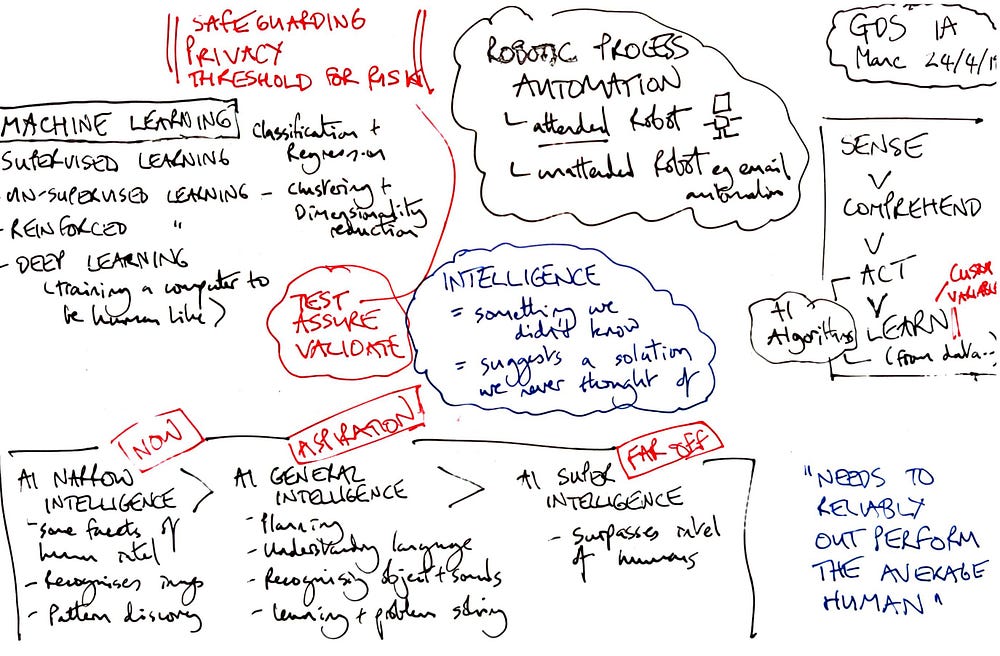 SAFEGUARDING
PRIVACY
THRESHOLD FOR RISK
ROBOTIC PROCESS
AUTOMATION
attended Robot
unattended Robot eg email
automation
GDS IA
Marc 24/4/1
MACHINE LEARNING
SUPERVISED LEARNING
Classification +
Regression
- UN-SUPERVISED LEARNING -
clustering +
Dimensionality
reduction
- REINFORCED "
- DEEP LEARNING
(training a computer to
be human like)
TEST
ASSURE
VALIDATE
INTELLIGENCE
= something we
didn't know
= suggests a solution
we never thought of
SENSE
COMPREHEND
ACT
LEARN
(from data..)
AI
Algorithms
VARIABLE
NOW
AI NARROW
INTELLIGENCE
- some facets of
human intel
- Recognises
- Pattern discovery
ASPIRATION
AI GENERAL
INTELLIGENCE
- Planning
- Understanding language
- Recognising object + sounds
- Learning + problem solving
FAR OFF
AI SUPER
INTELLIGENCE
- surpasses intel
of humans
"NEEDS TO
RELIABLY
OUT PERFORM
THE AVERAGE
HUMAN"